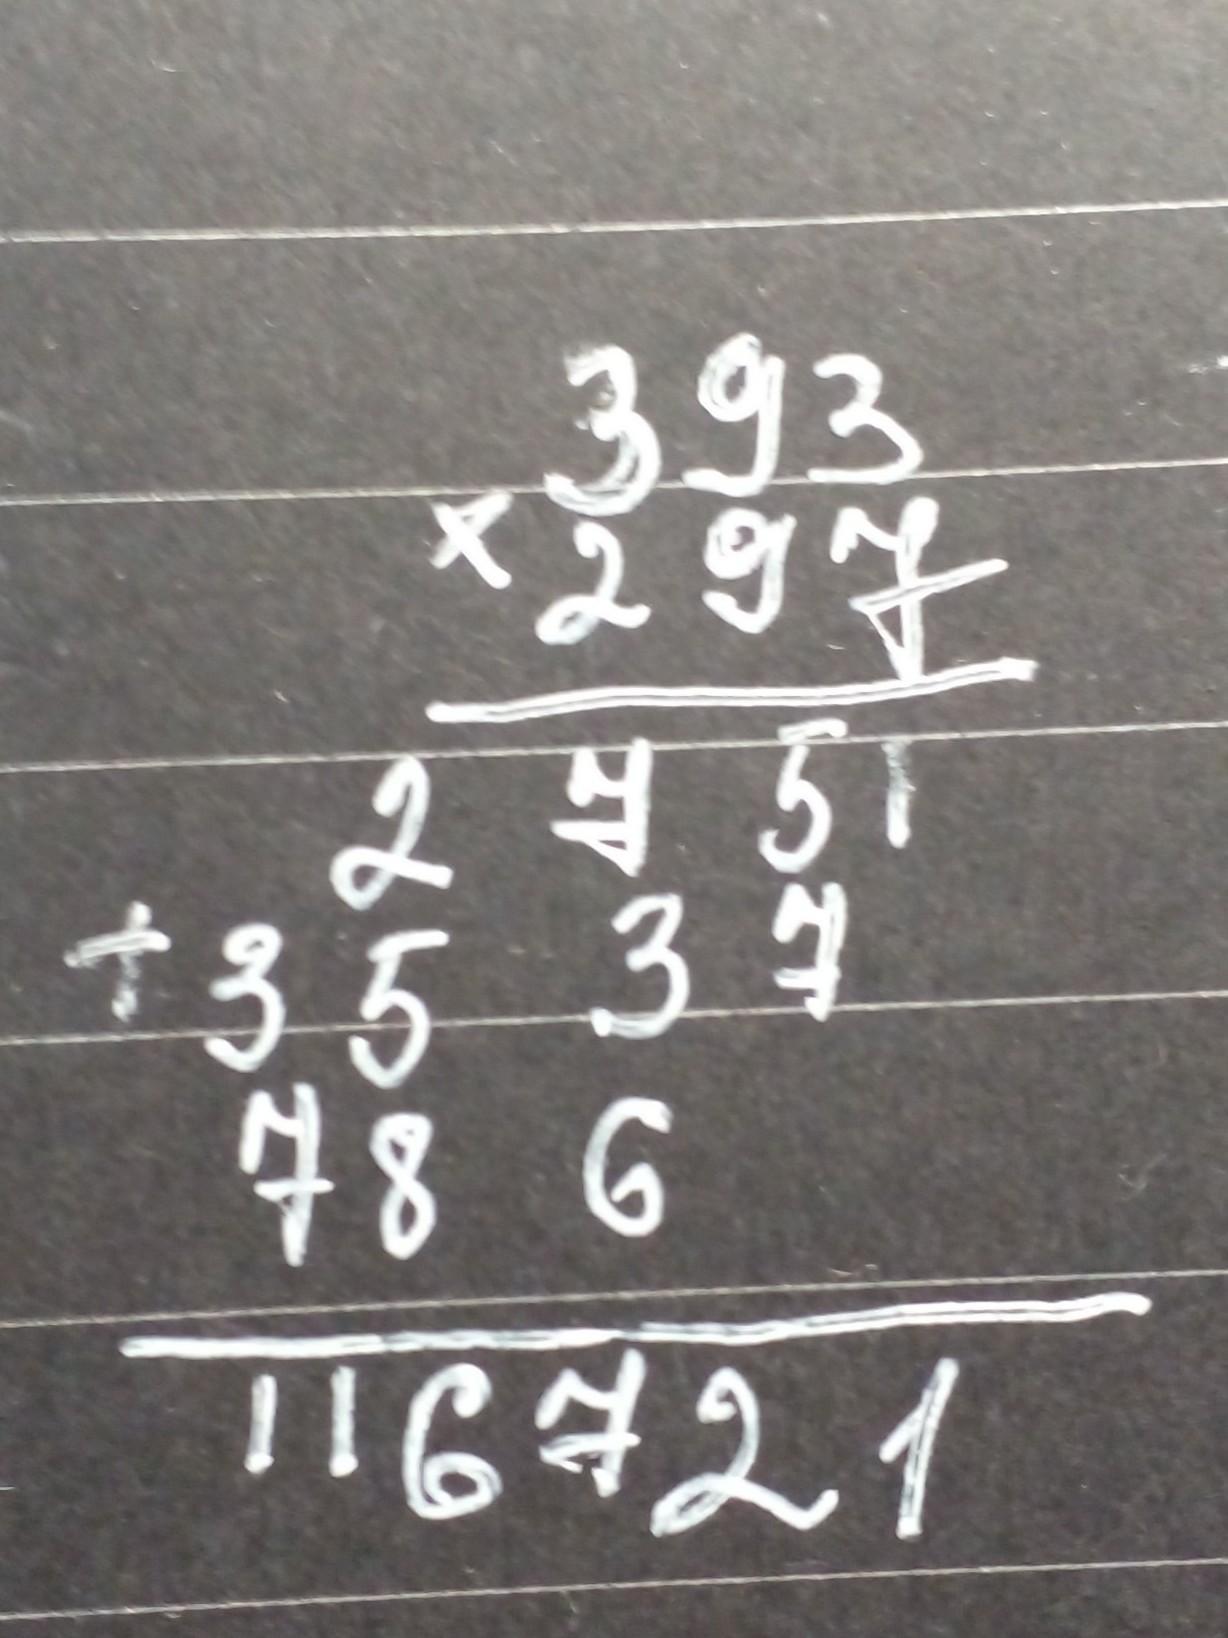 393
× 297
2751
+ 3537
786
116721